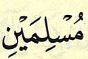 مُسْلِمَيْنِ